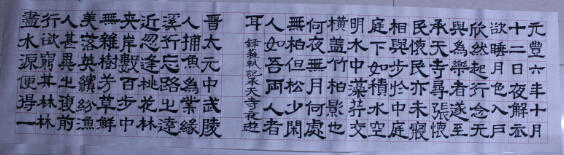 元豐六年十月
十二日夜解衣
欲睡月色入戶
欣然起行念无
與為樂者遂至
承天寺尋張懷
民懷民亦未寢
相與步於中庭
庭下如積水空
明水中藻荇交
橫蓋竹柏影也
何夜無月何處
無柏但松少閑
人如吾兩人者
耳 錄蘇軾記承天寺夜遊
晉太元中武陵
人捕魚為業緣
溪行忘路之遠
近忽逢桃花林
夾岸數百步中
無雜樹芳草鮮
美落英繽紛漁
人甚異之復前
行欲窮其林林
盡水源便得一